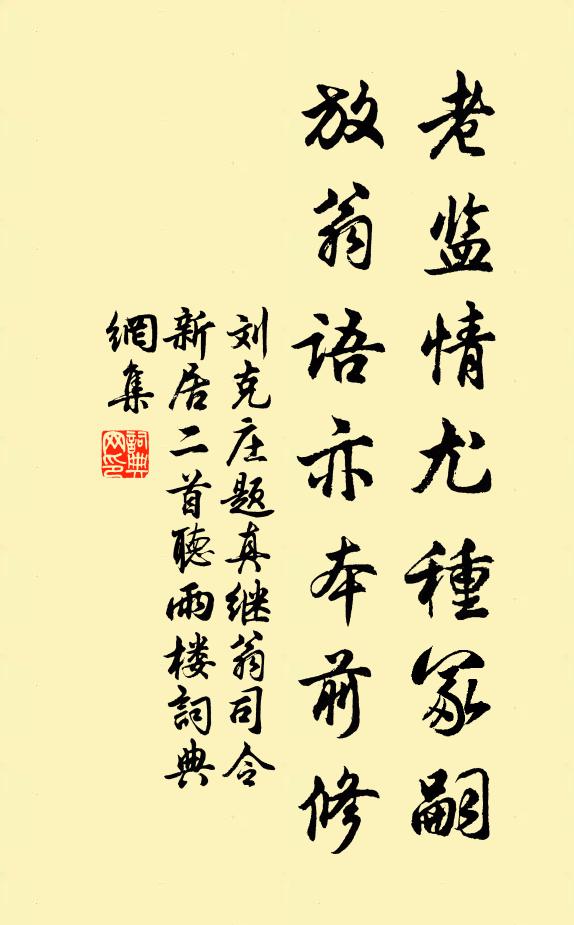 老监情尤種冢嗣
放翁语亦本前修
刘克庄题真继翁司令
新居二首聽雨楼詞典
網集
詞典
网印